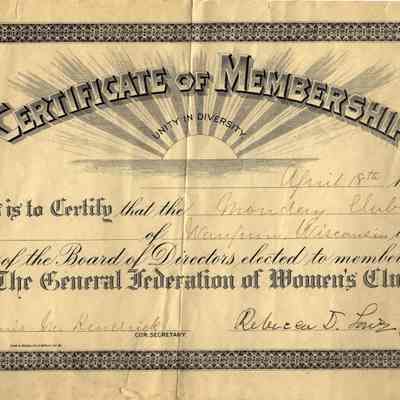 CERTIFICATE OF MEMBERSHIP
UNITY IN DIVERSITY
April 18th
is to Certify that the Monday Club
of Waupun Wisconsin
of the Board of Directors elected to member
The General Federation of Women's Clu
Rebecca D. Lowe
COR. SECRETARY